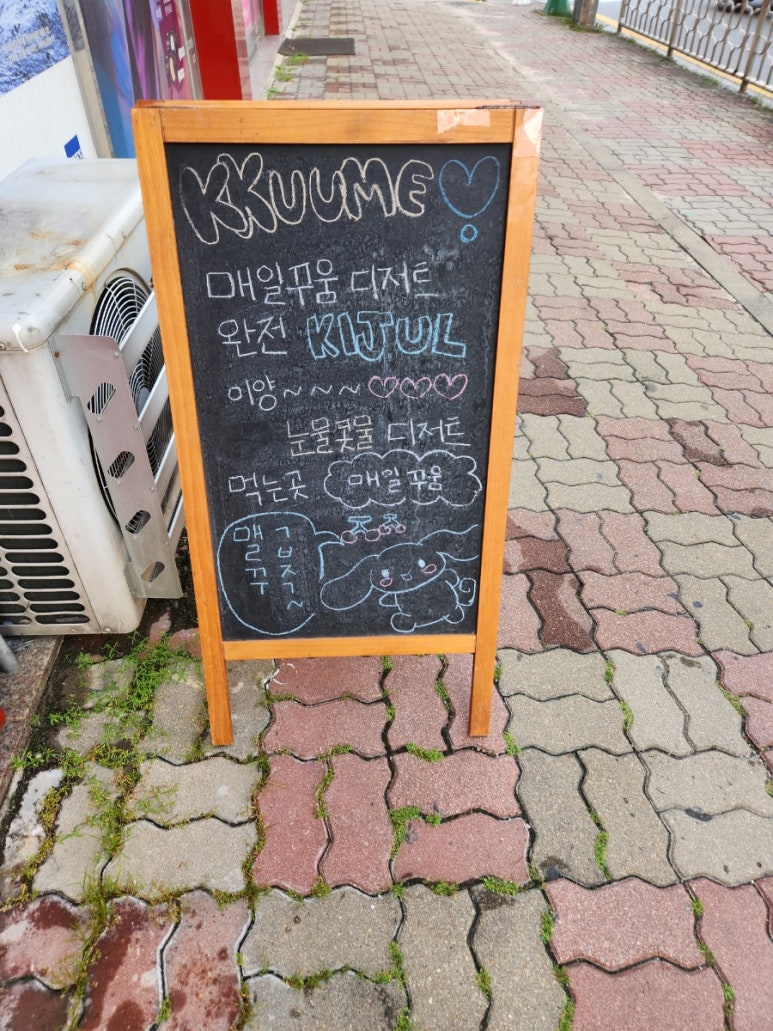 KKUUME
매일꾸움 디저트
완전 KIJUL
이양~~~
눈물콧물 디저트
먹는곳 매일꾸움
맬꾸
급쥑~